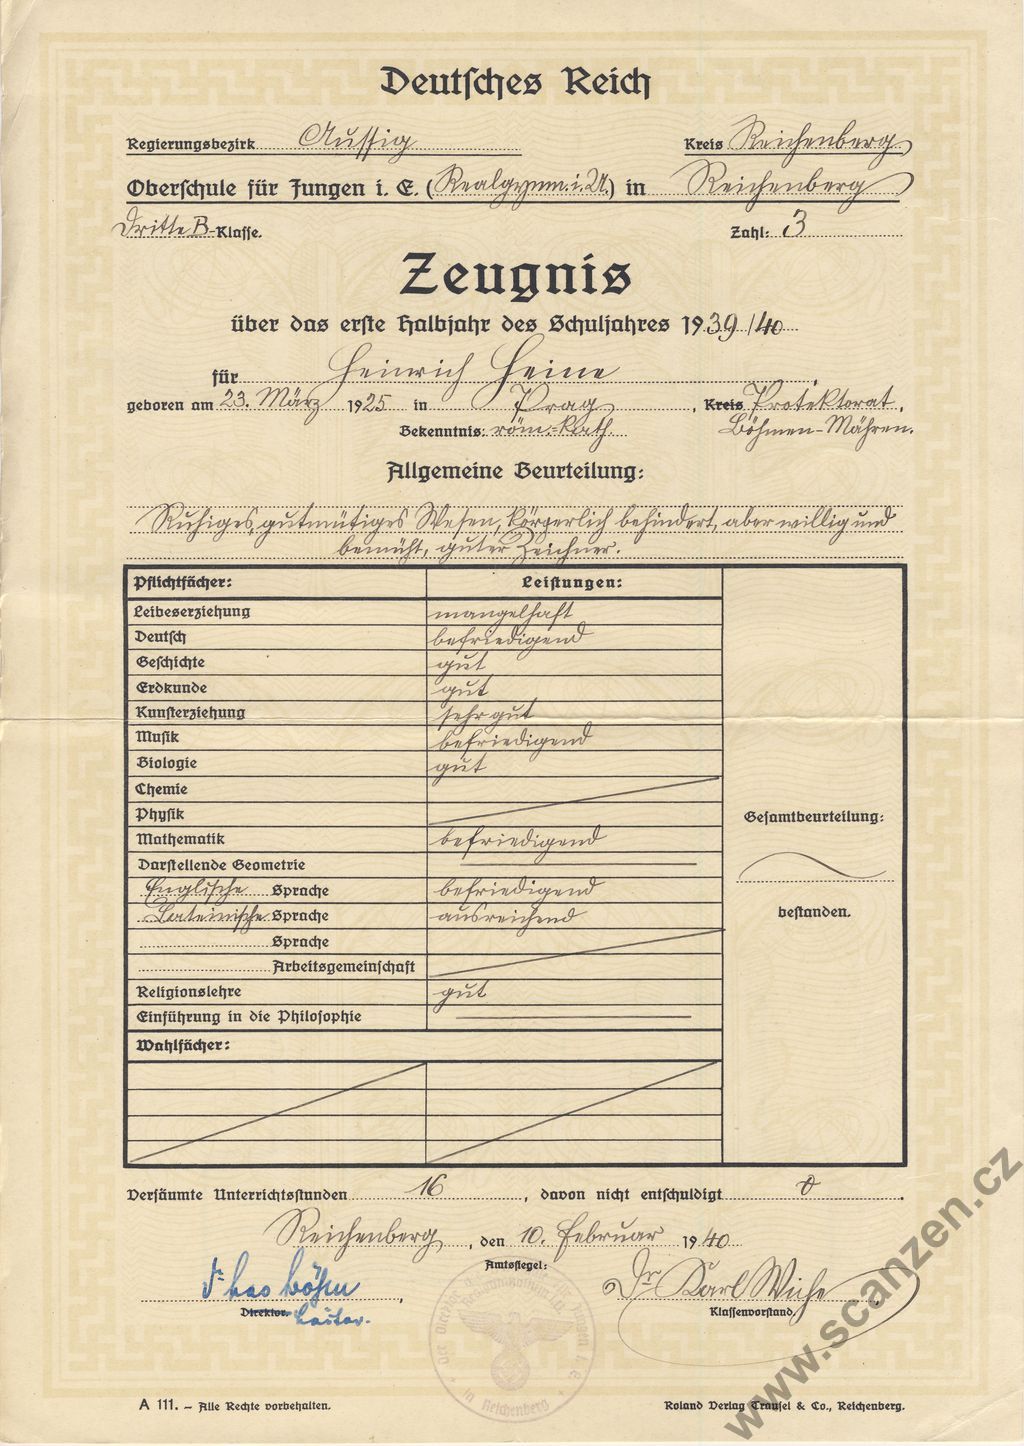 Deutsches Reich
Regierungsbezirk Aussig Kreis Reichenberg
Oberschule für Jungen i. E. (Realgymn. i. U.) in Reichenberg
Dritte B-Klasse. Zahl: 3
Zeugnis
über das erste Halbjahr des Schuljahres 1939/40
für Heinrich Heine
geboren am 23. März 1925 in Prag, Kreis Protektorat
Bekenntnis: röm.-kath. Böhmen-Mähren.
Allgemeine Beurteilung:
Ruhiges, gutmütiges Wesen, körperlich behindert, aber willig und
bemüht, guter Zeichner.
Pflichtfächer: Leistungen:
Leibeserziehung mangelhaft
Deutsch befriedigend
Geschichte gut
Erdkunde gut
Kunsterziehung sehr gut
Musik befriedigend
Biologie gut
Chemie
Physik
Gesamtbeurteilung:
Mathematik befriedigend
Darstellende Geometrie
Englische Sprache befriedigend
Lateinische Sprache ausreichend
bestanden.
Sprache
Arbeitsgemeinschaft
Religionslehre gut
Einführung in die Philosophie
Wahlfächer:
Versäumte Unterrichtsstunden 16, davon nicht entschuldigt 0.
Reichenberg, den 10. Februar 1940
Amtssiegel:
Dr. Karl Wiche
Direktor. Klassenvorstand.
in Reichenberg
A 111. – Alle Rechte vorbehalten. Roland Verlag Trausel & Co., Reichenberg.
www.scanzen.cz